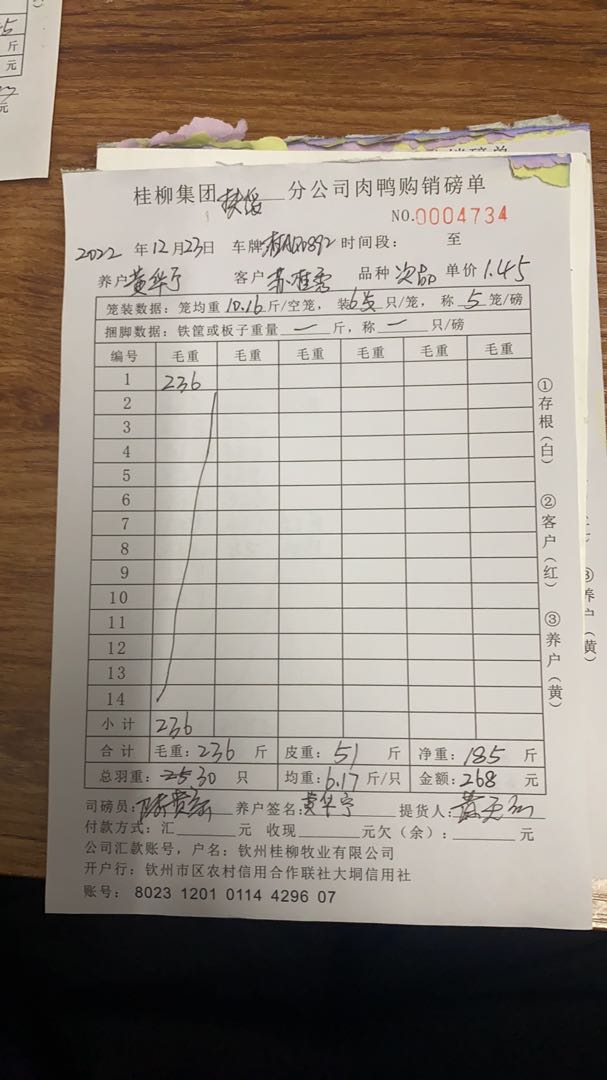 桂柳集团扶绥分公司肉鸭购销磅单
NO.0004734
2022年12月23日 车牌 892 时间段： 至
养户黄华宁 客户 苏 品种 次品 单价 1.45
笼装数据：笼均重 10.16 斤/空笼，装 6 只/笼，称 5 笼/磅
捆脚数据：铁筐或板子重量 — 斤，称 — 只/磅
编号 毛重 毛重 毛重 毛重 毛重 毛重
1 236
2
3
4
5
6
7
8
9
10
11
12
13
14
小计 236
合计 毛重：236 斤 皮重：51 斤 净重：185 斤
总羽重：30 只 均重：6.17 斤/只 金额：268 元
司磅员： 养户签名：黄华宁 提货人：黄
付款方式：汇 元 收现 元欠（余）： 元
公司汇款账号，户名：钦州桂柳牧业有限公司
开户行：钦州市区农村信用合作联社大垌信用社
账号：8023 1201 0114 4296 07
①存根（白）
②客户（红）
③养户（黄）
斤
元
元
③养户（黄）